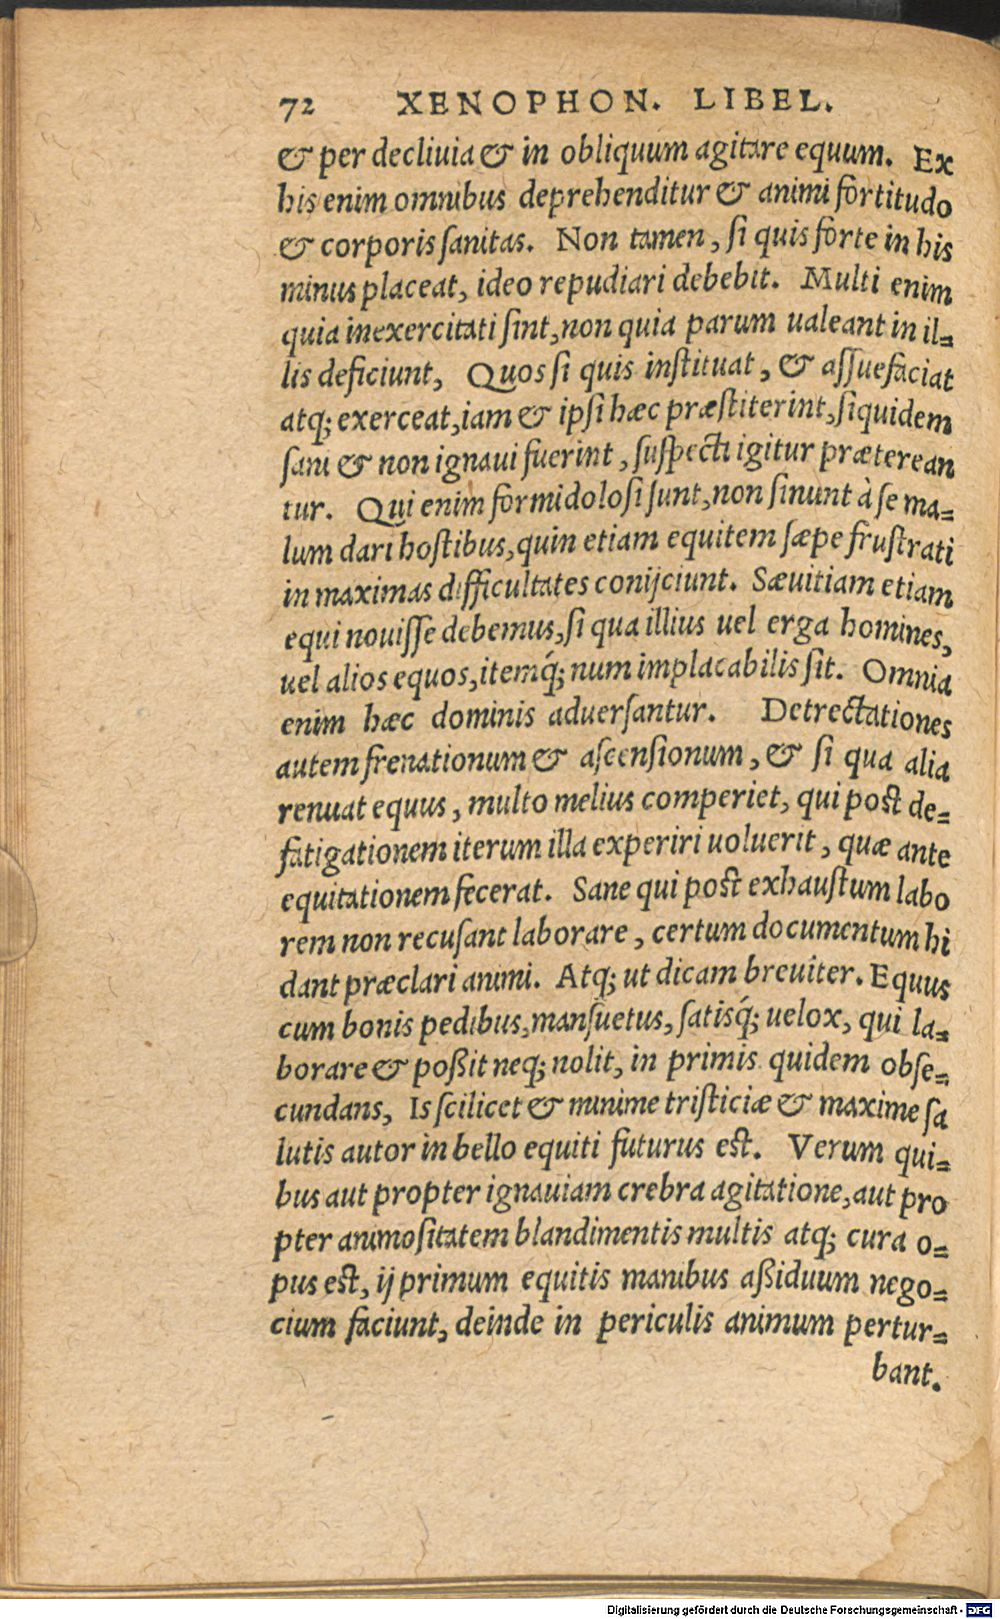 72 XENOPHON. LIBEL.
& per decliuia & in obliquum agitare equum. Ex
his enim omnibus deprehenditur & animi fortitudo
& corporis sanitas. Non tamen, si quis forte in his
minus placeat, ideo repudiari debebit. Multi enim
quia inexercitati sint, non quia parum ualeant in il⸗
lis deficiunt, Quos si quis instituat, & assuefaciat
atq; exerceat, iam & ipsi hæc præstiterint, siquidem
sani & non ignaui fuerint, suspecti igitur præterean
tur. Qui enim formidolosi sunt, non sinunt à se ma⸗
lum dari hostibus, quin etiam equitem sæpe frustrati
in maximas difficultates conijciunt. Sæuitiam etiam
equi nouisse debemus, si qua illius uel erga homines,
uel alios equos, itemq́; num implacabilis sit. Omnia
enim hæc dominis aduersantur. Detrectationes
autem frenationum & ascensionum, & si qua alia
renuat equus, multo melius comperiet, qui post de⸗
fatigationem iterum illa experiri uoluerit, quæ ante
equitationem fecerat. Sane qui post exhaustum labo
rem non recusant laborare, certum documentum hi
dant præclari animi. Atq; ut dicam breuiter. Equus
cum bonis pedibus, mansuetus, satisq́; uelox, qui la⸗
borare & poßit neq; nolit, in primis quidem obse⸗
cundans, Is scilicet & minime tristiciæ & maxime sa
lutis autor in bello equiti futurus est. Verum qui⸗
bus aut propter ignauiam crebra agitatione, aut pro
pter animositatem blandimentis multis atq; cura o⸗
pus est, ij primum equitis manibus aßiduum nego⸗
cium faciunt, deinde in periculis animum pertur⸗
bant.
Digitalisierung gefördert durch die Deutsche Forschungsgemeinschaft - DFG